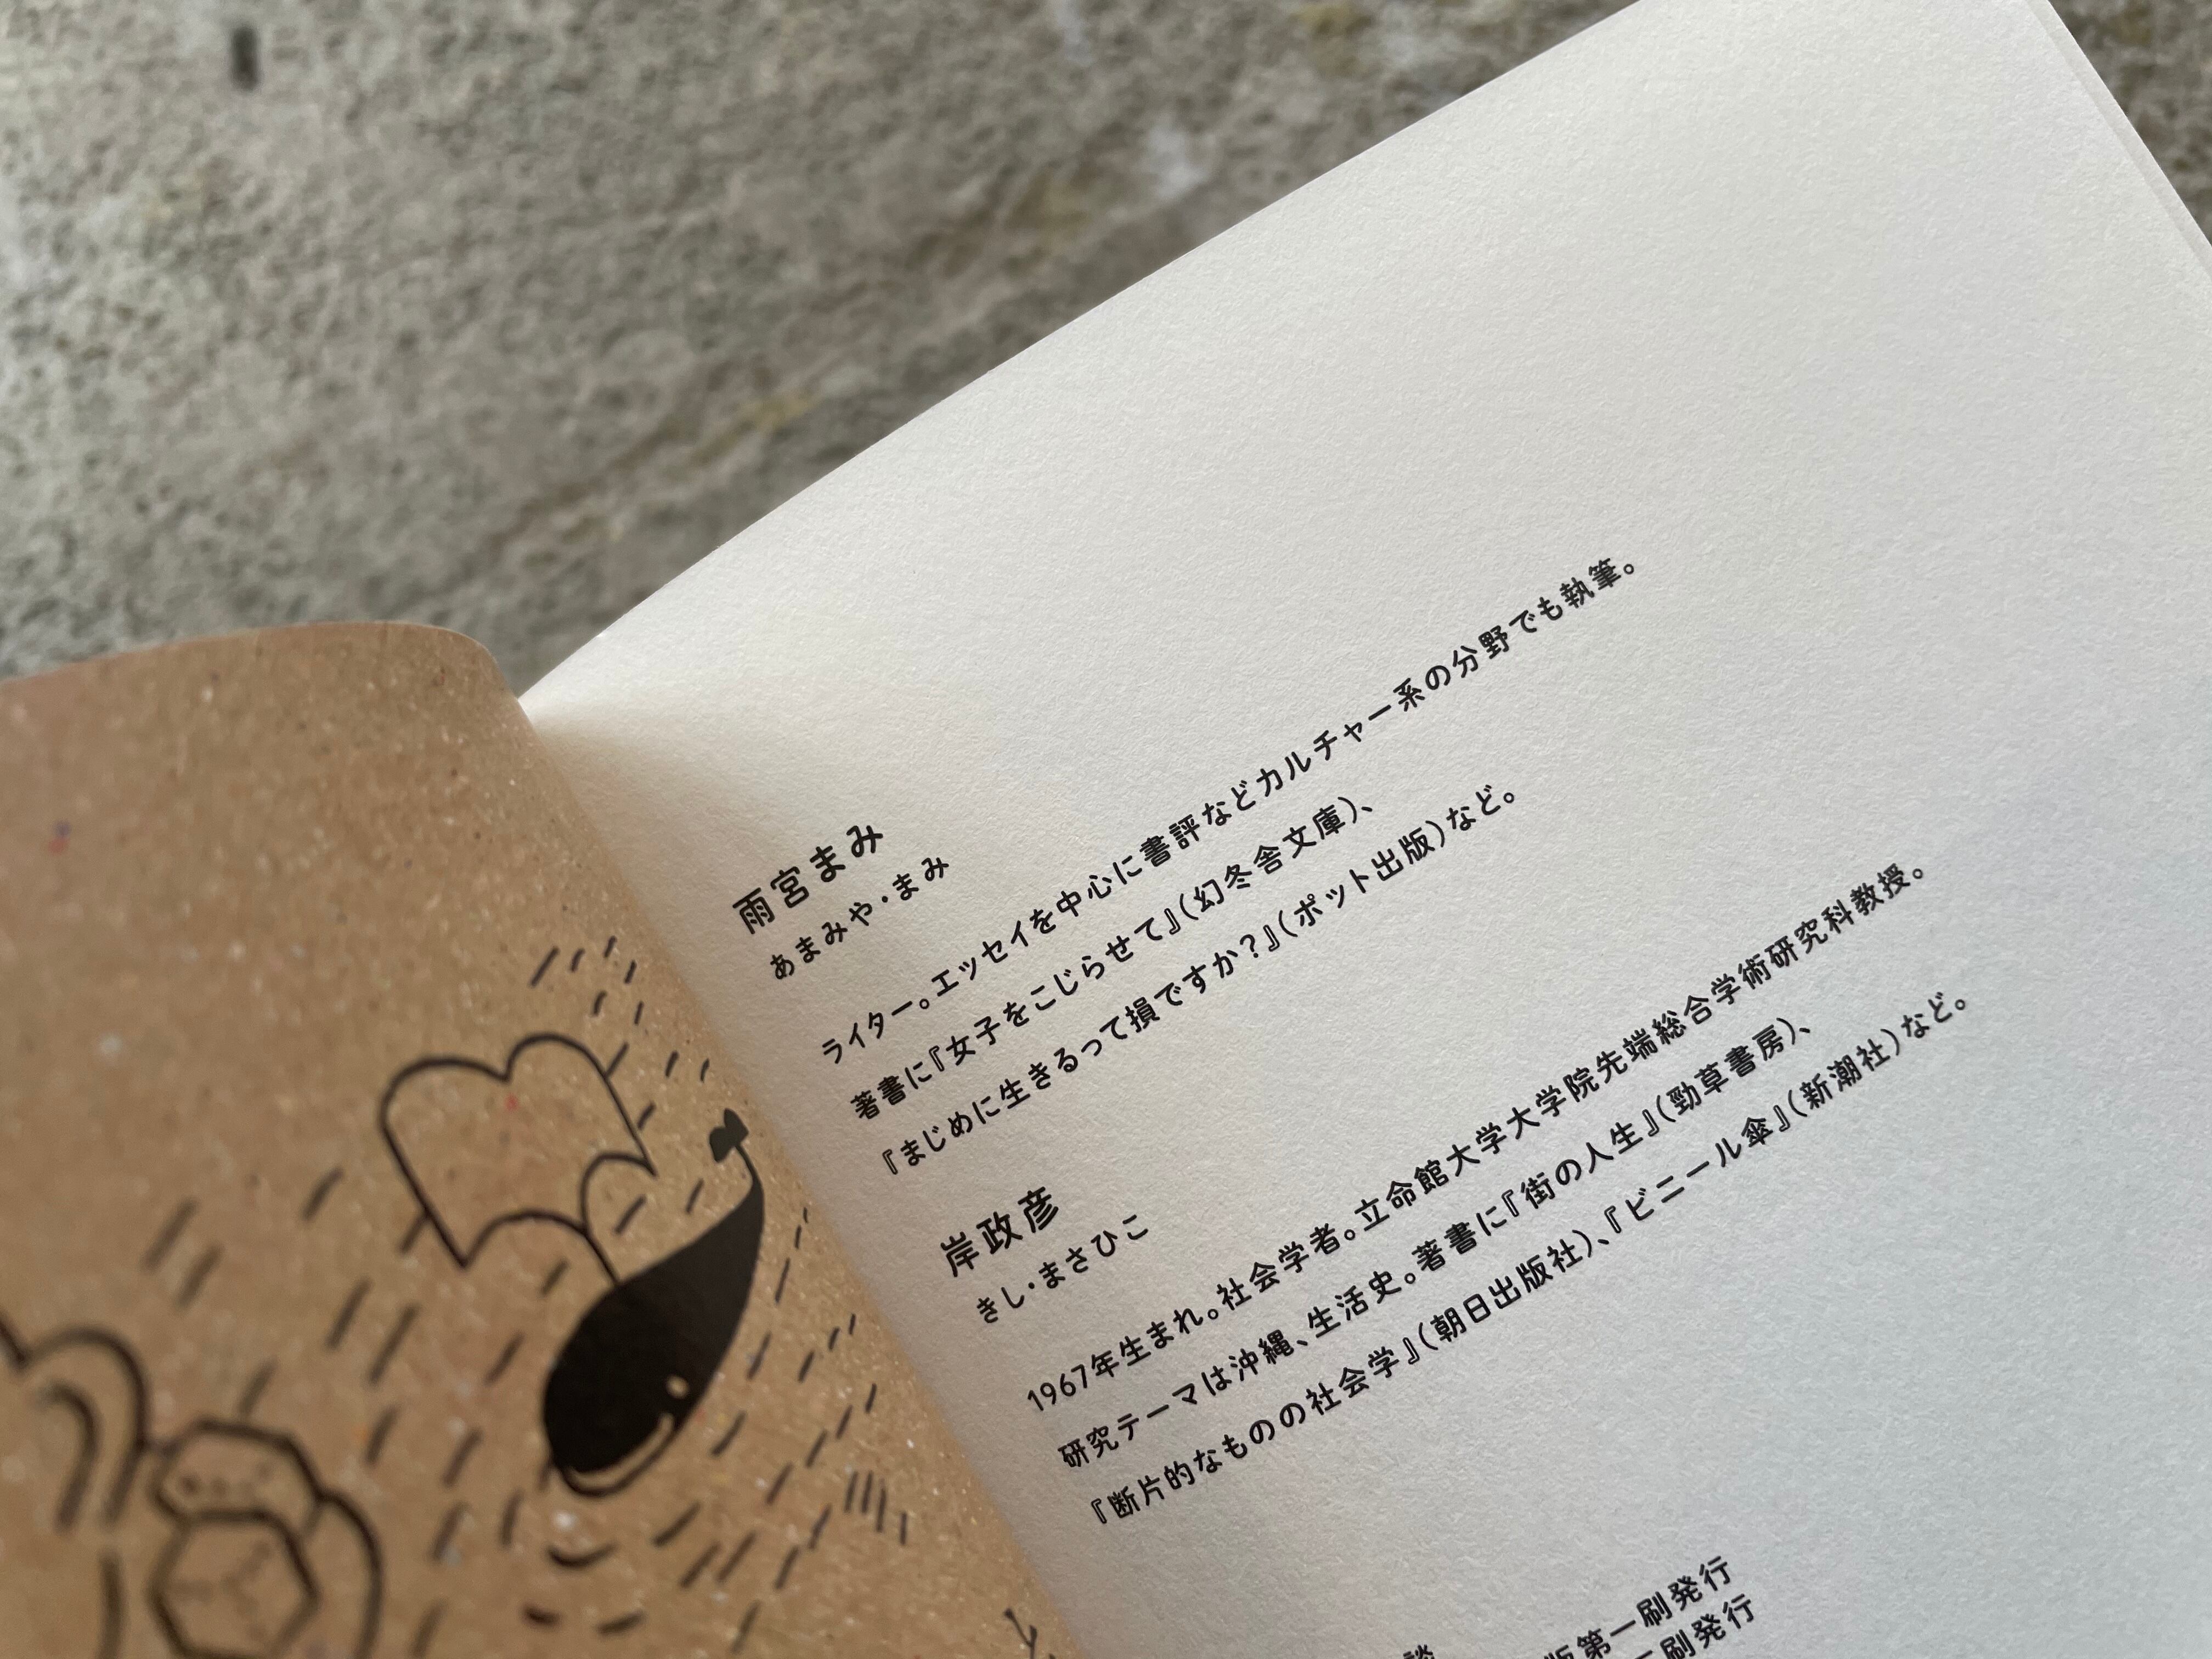 雨宮まみ
あまみや・まみ
ライター。エッセイを中心に書評などカルチャー系の分野でも執筆。
著書に『女子をこじらせて』(幻冬舎文庫)、
『まじめに生きるって損ですか?』(ポット出版)など。
岸政彦
きし・まさひこ
1967年生まれ。社会学者。立命館大学大学院先端総合学術研究科教授。
研究テーマは沖縄、生活史。著書に『街の人生』(勁草書房)、
『断片的なものの社会学』(朝日出版社)、『ビニール傘』(新潮社)など。
版第一刷発行
刷発行